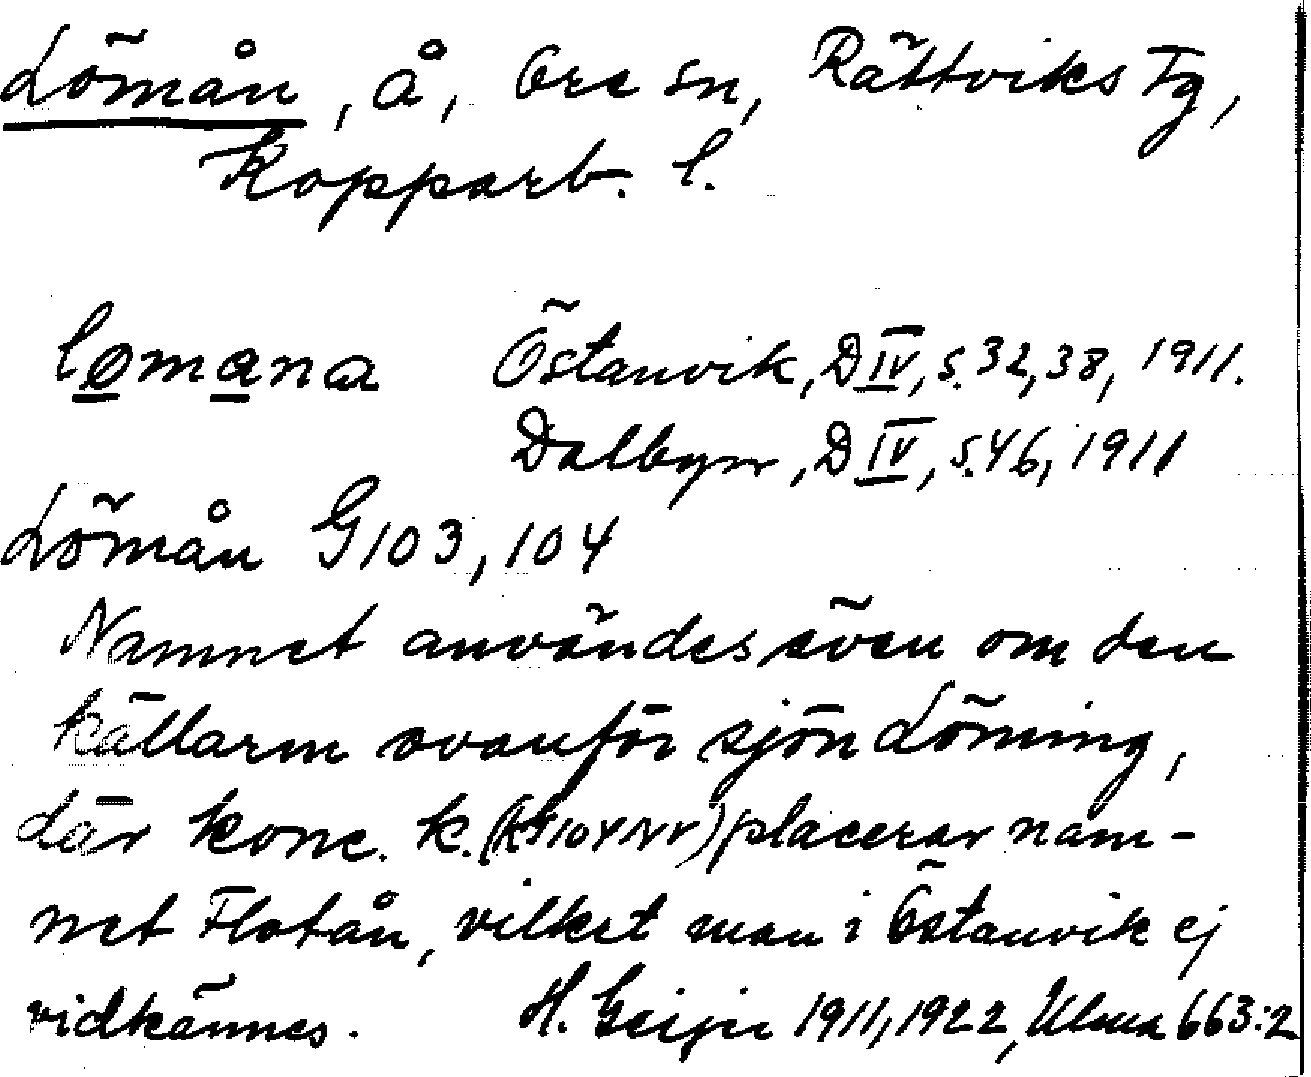 Lömån, å, Ore sn, Rättviks tg,
Kopparb. l.
lømana Östanvik, D IV, s. 32, 38, 1911.
Dalbyn, D IV, s. 46, 1911
Lömån G 103, 104
Namnet användes även om den
källarm ovanför sjön Löning,
där konc. k. placerar nam-
net Flotån, vilket man i Östanvik ej
vidkännes. H. Geijer 1911, 1922, Ulma 663:2